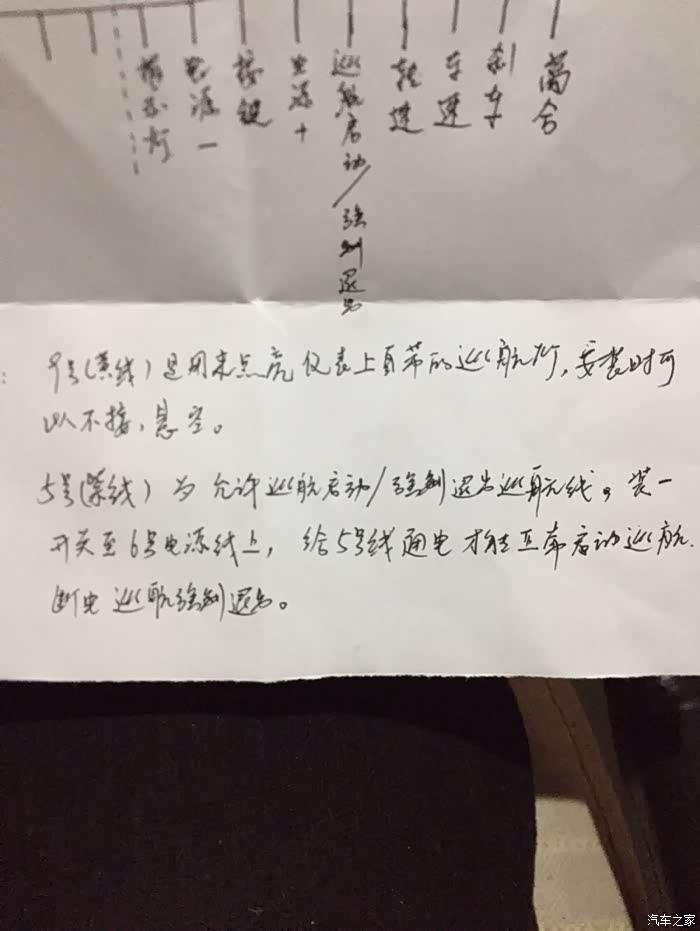 指示灯
电源一
按键
电源+
巡航启动/强制退出
转速
车速
刹车
离合
9号(线)是用来点亮仪表上自带的巡航灯,安装时可
以不接,悬空。
5号(紫线)为允许巡航启动/强制退出巡航线。装一
开关至6号电源线上,给5号线通电才能正常启动巡航.
断电巡航强制退出。
汽车之家